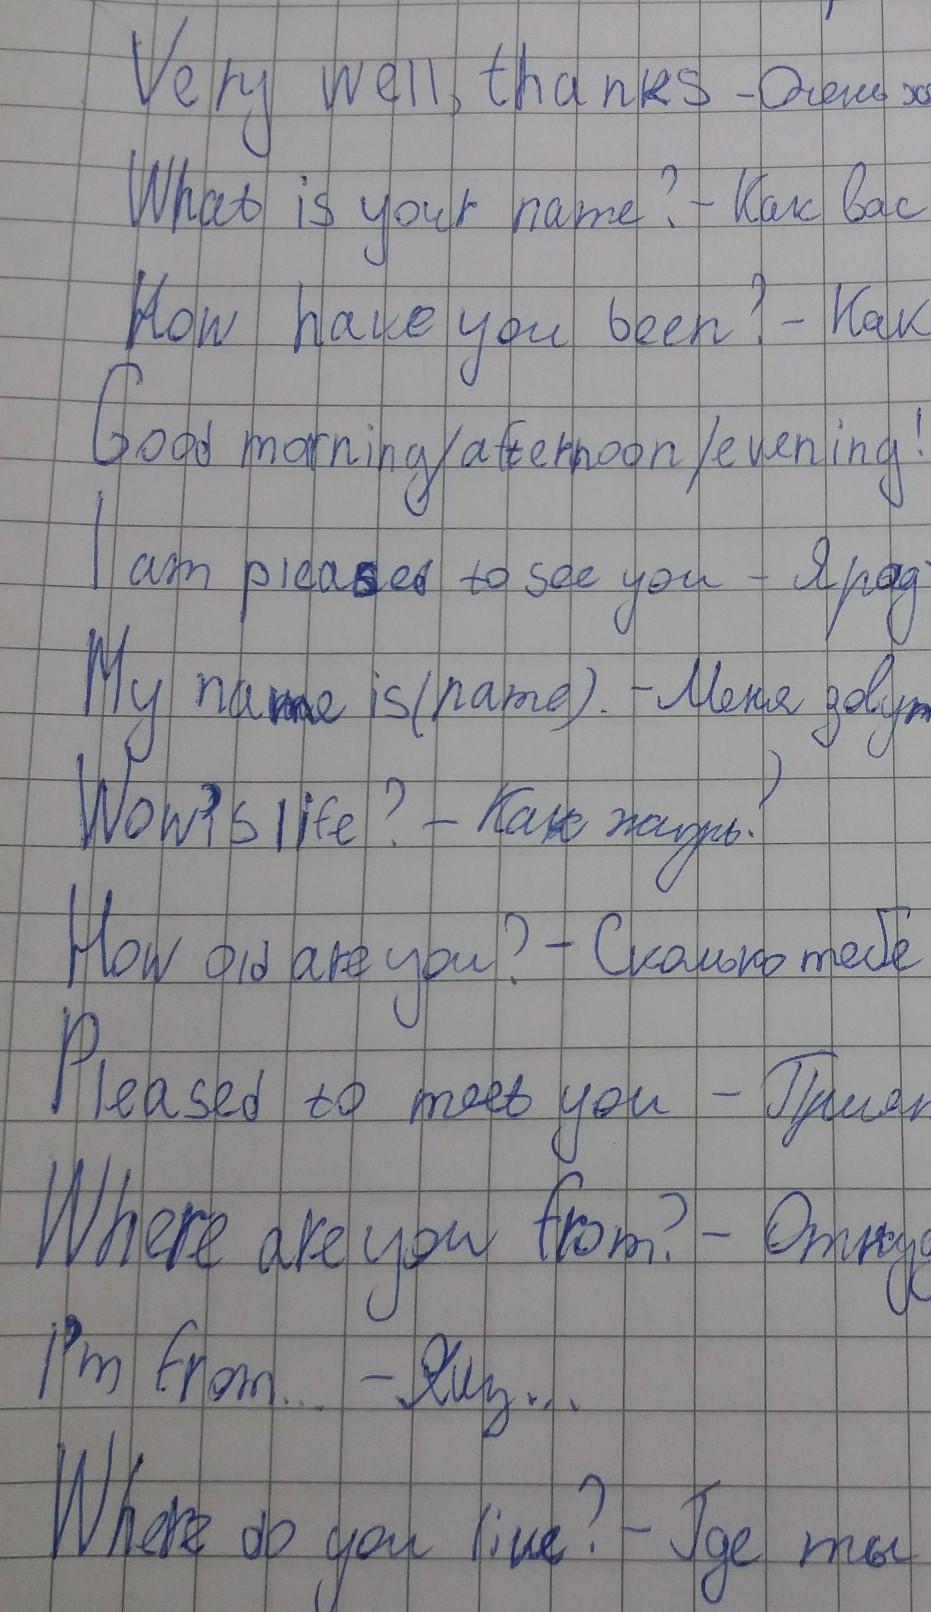 Very well, thanks - Очень хо
What is your name? - Как вас
How have you been? - Как
Good morning/afternoon/evening!
I am pleased to see you - Я рад
My name is (name). - Меня зовут
Wow's life? - Как жизнь?
How old are you? - Сколько тебе
Pleased to meet you - Прият
Where are you from? - Откуд
I'm from... - Я из...
Where do you live? - Где ты